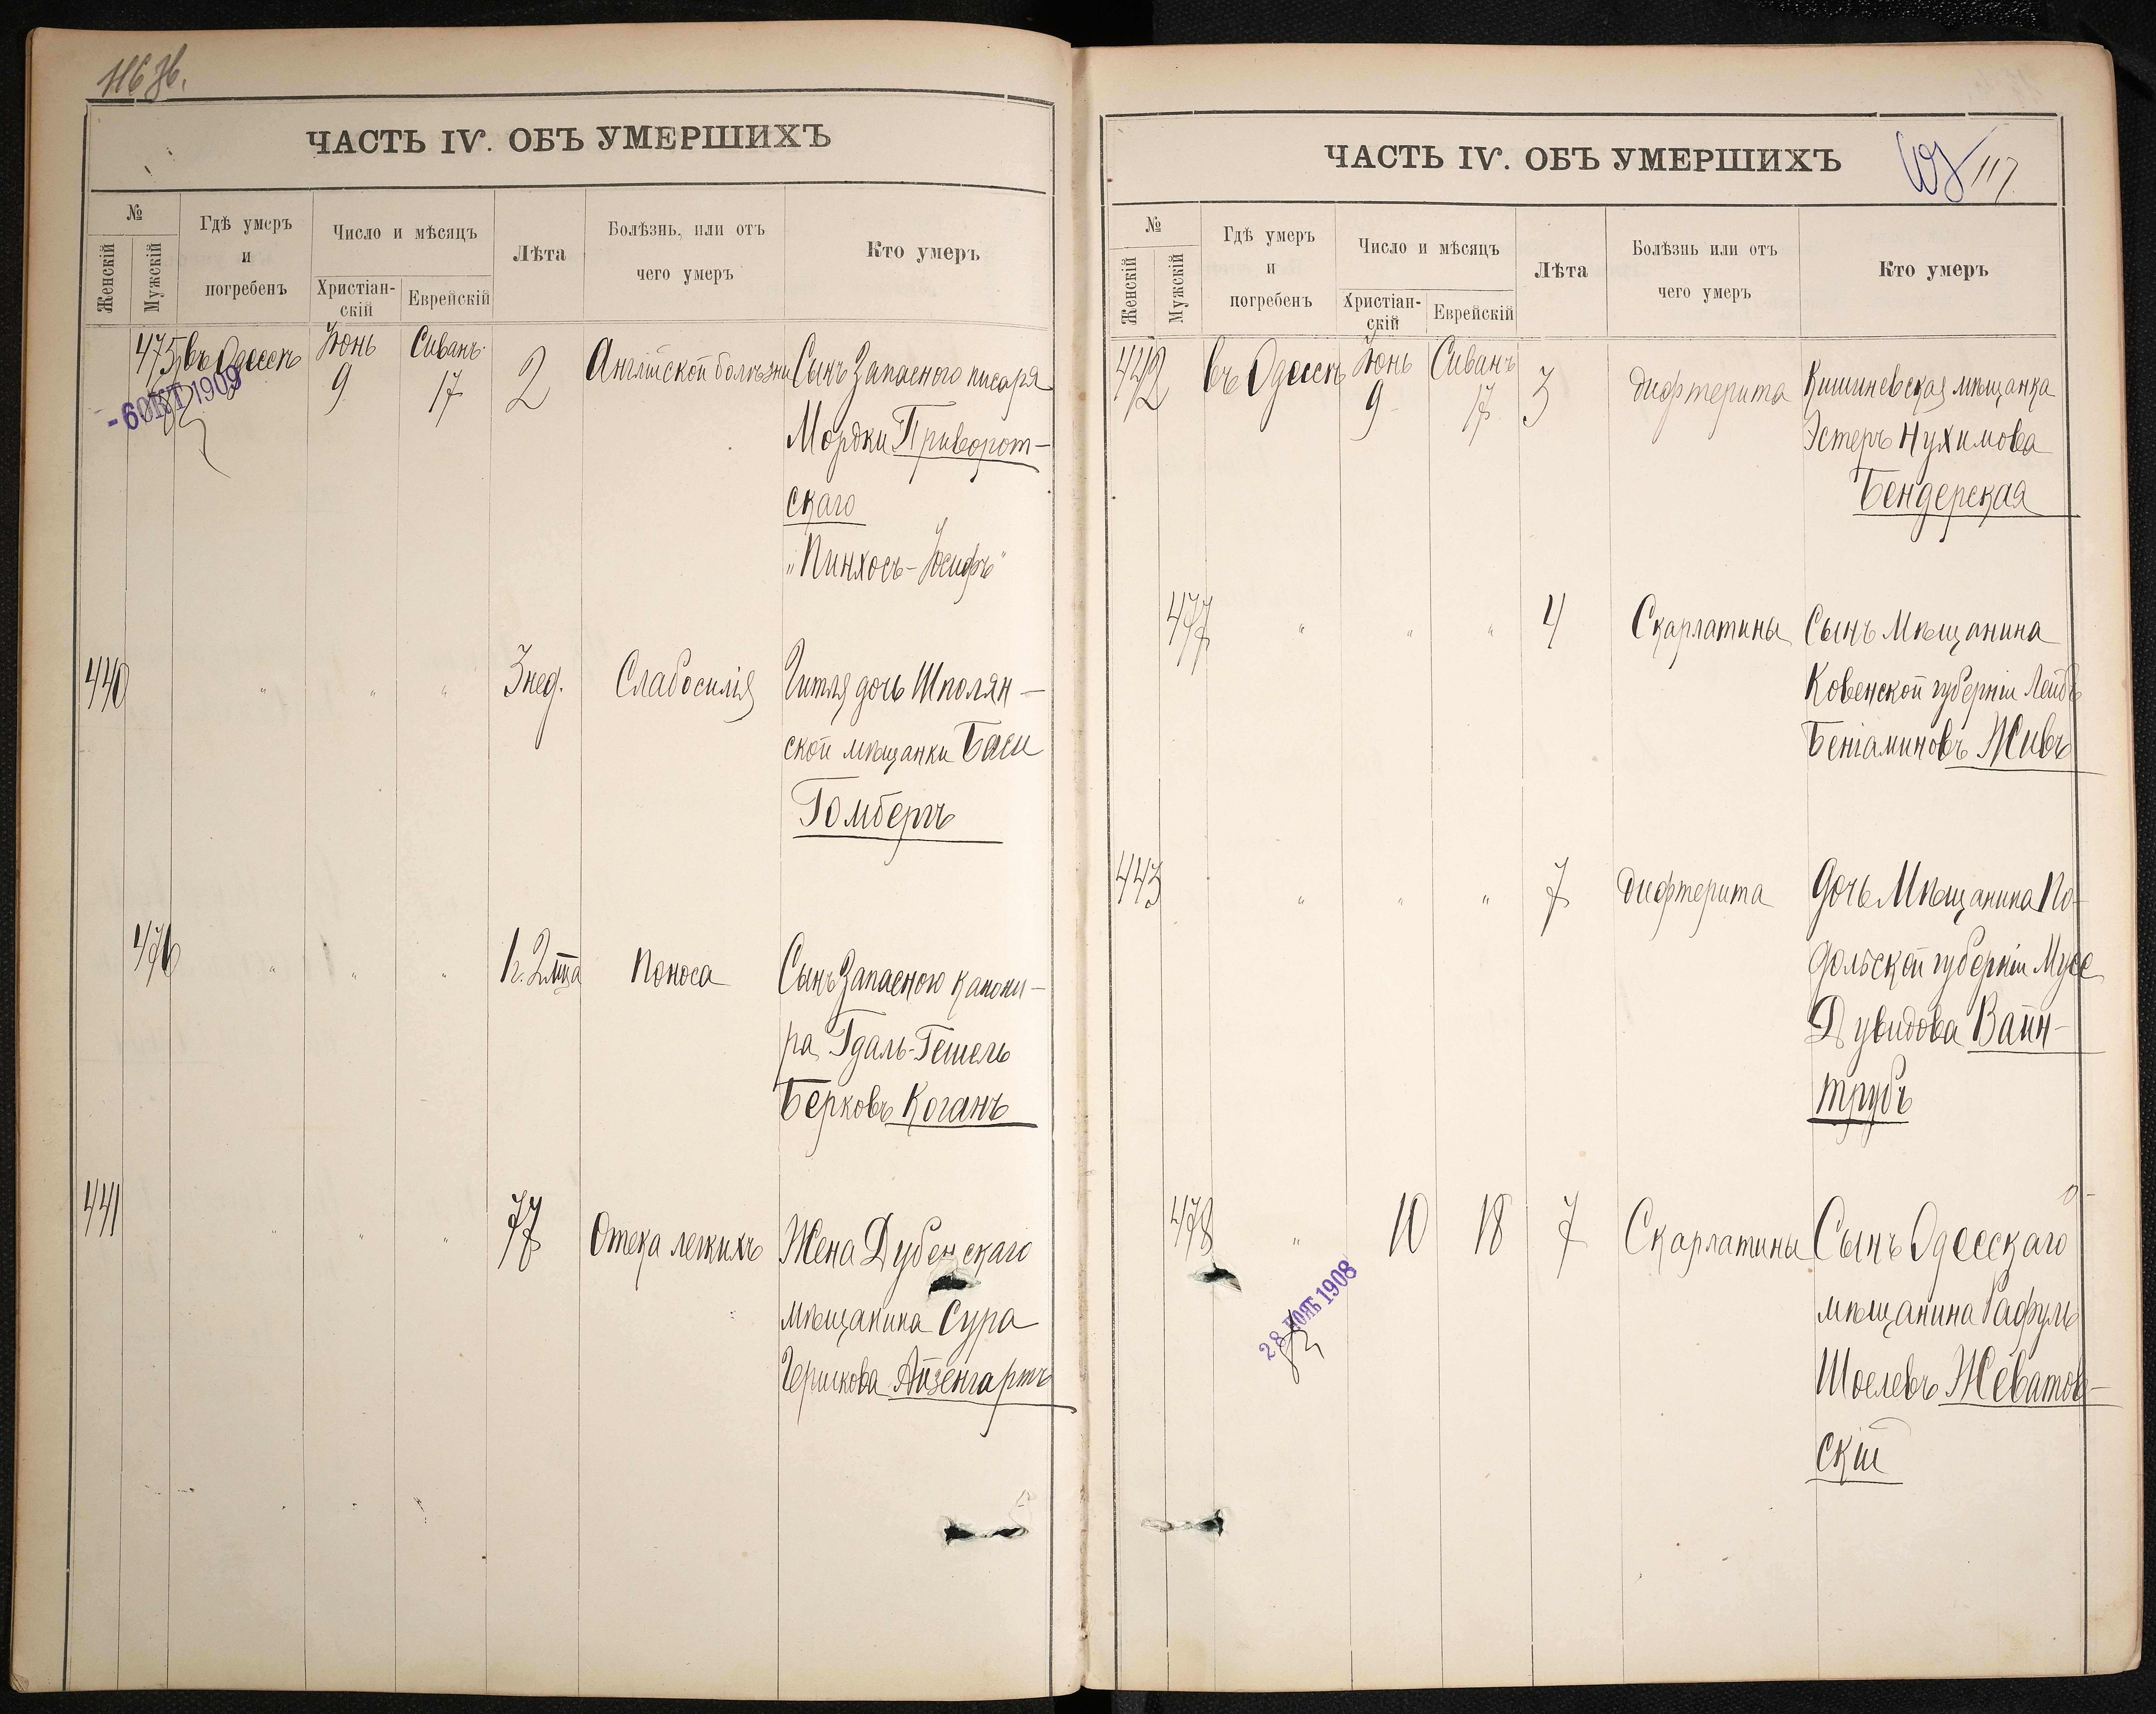 ЧАСТЬ IV. ОБЪ УМЕРШИХЪ
№
Женскій
Мужскій
Гдѣ умеръ
и
погребенъ
Число и мѣсяцъ
Христіан-
скій
Еврейскій
Лѣта
Болѣзнь, или отъ
чего умеръ
Кто умеръ
475 въ Одессѣ Іюнь 9 Сиванъ 17 2 Англійской болѣзни Сынъ Запасного писаря
Мордки Приворот-
скаго
„Пинхосъ-Іосифъ"
- 6 ОКТ 1909
440 " " " 3 нед. Слабосилія Гитля дочь Шполян-
ской мѣщанки Баси
Гомбергъ
476 " " " 1 г. 2 мца Поноса Сынъ Запасного канони-
ра Гдаль-Гешель
Берковъ Коганъ
441 " " " 77 Отека легкихъ Жена Дубенскаго
мѣщанина Сура
Гершкова Айзенгартъ
ЧАСТЬ IV. ОБЪ УМЕРШИХЪ
117
№
Женскій
Мужскій
Гдѣ умеръ
и
погребенъ
Число и мѣсяцъ
Христіан-
скій
Еврейскій
Лѣта
Болѣзнь или отъ
чего умеръ
Кто умеръ
442 въ Одессѣ Іюнь 9 Сиванъ 17 3 Дифтерита Кишиневская мѣщанка
Эстеръ Нухимова
Бендерская
477 " " " 4 Скарлатины Сынъ Мѣщанина
Ковенской губерніи Лейбъ
Беніаминовъ Живъ
443 " " " 7 Дифтерита Дочь Мѣщанина По-
дольской губерніи
Дувидова Вайн-
трубъ
478 " 10 18 7 Скарлатины Сынъ Одесскаго
мѣщанина Рафуль
Шоелевъ Жеватов-
скій
28 НОЯБ 1908